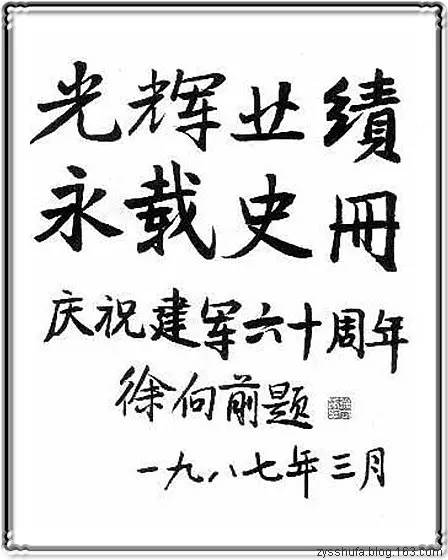 光辉业績
永载史冊
庆祝建军六十周年
徐向前题
一九八七年三月
zysshufa.blog.163.com